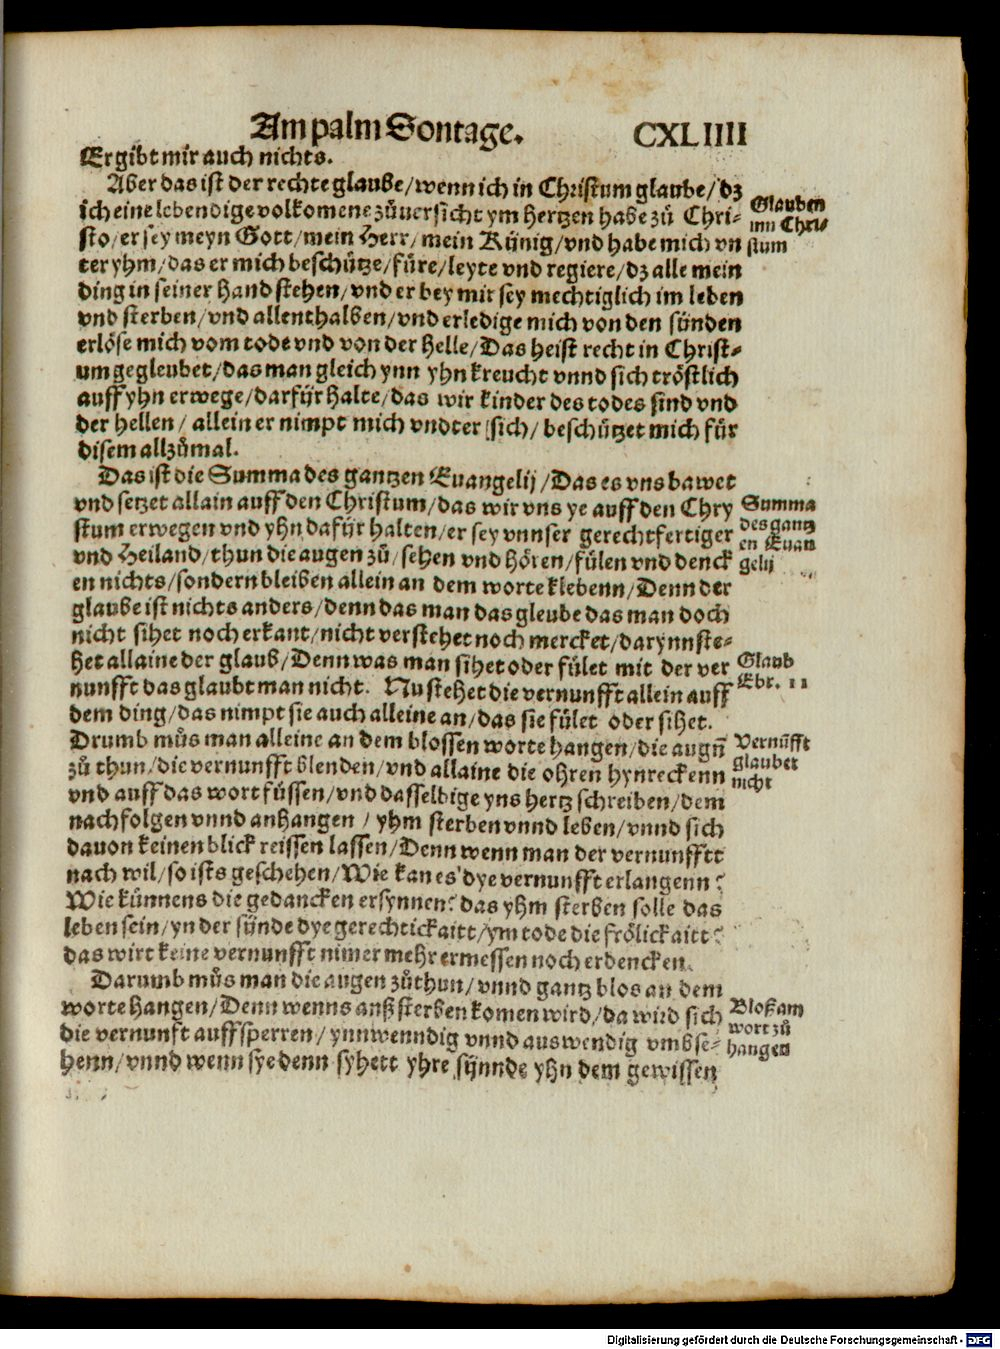 Am palm Sontage. CXLIIII
Er gibt mir auch nichts.
Aber das ist der rechte glaube/wenn ich in Christum glaube/dz
ich eine lebendige volkomene zůuersicht ym hertzen habe zů Chri-
sto/er sey meyn Gott/mein Herr/mein Künig/vnd habe mich vn
ter yhm/das er mich beschütze/füre/leyte vnd regiere/dz alle mein
ding in seiner hand stehen/vnd er bey mir sey mechtiglich im leben
vnd sterben/vnd allenthalben/vnd erledige mich von den sünden
erlöse mich vom tode vnd von der helle/Das heist recht in Christ-
um gegleubet/das man gleich ynn yhn kreucht vnnd sich tröstlich
auff yhn erwege/darfür halte/das wir kinder des todes sind vnd
der hellen/allein er nimpt mich vndter sich/beschützet mich für
disem allzůmal.
Glauben
inn Chri-
stum
Das ist die Summa des gantzen Euangelij/Das es vns bawet
vnd setzet allain auff den Christum/das wir vns ye auff den Chry
stum erwegen vnd yhn dafür halten/er sey vnnser gerechtfertiger
vnd Heiland/thun die augen zů/sehen vnd hören/fülen vnd denck
en nichts/sondern bleiben allein an dem worte klebenn/Denn der
glaube ist nichts anders/denn das man das gleube das man doch
nicht sihet noch erkant/nicht verstehet noch mercket/darynn ste-
het allaine der glaub/Denn was man sihet oder fület mit der ver
nunfft das glaubt man nicht. Nu stehet die vernunfft allein auff
dem ding/das nimpt sie auch alleine an/das sie fület oder sihet.
Drumb můs man alleine an dem blossen worte hangen/die augn̄
zů thun/die vernunfft blenden/vnd allaine die ohren hynreckenn
vnd auff das wort füssen/vnd dasselbige yns hertz schreiben/dem
nachfolgen vnnd anhangen/yhm sterben vnnd leben/vnnd sich
dauon keinen blick reissen lassen/Denn wenn man der vernunfftt
nach wil/so ists geschehen/Wie kan es dye vernunfft erlangenn?
Wie künnens die gedancken ersynnen? das yhm sterben solle das
leben sein/yn der sünde dye gerechtickaitt/ym tode die frölickaitt?
das wirt keine vernunfft nimer mehr ermessen noch erdencken.
Summa
des gantz
en Euan
gelij
Glaub
Ebr. 11
Vernūfft
glaubet
nicht
Darumb můs man die augen zůthun/vnnd gantz blos an dem
worte hangen/Denn wenns anß sterben komen wird/da wird sich
die vernunft auffsperren/ynnwenndig vnnd auswendig vmbse-
henn/vnnd wenn sye denn syhett yhre synnde yhn dem gewissen
Bloß am
wort zů
hangen
Digitalisierung gefördert durch die Deutsche Forschungsgemeinschaft - DFG